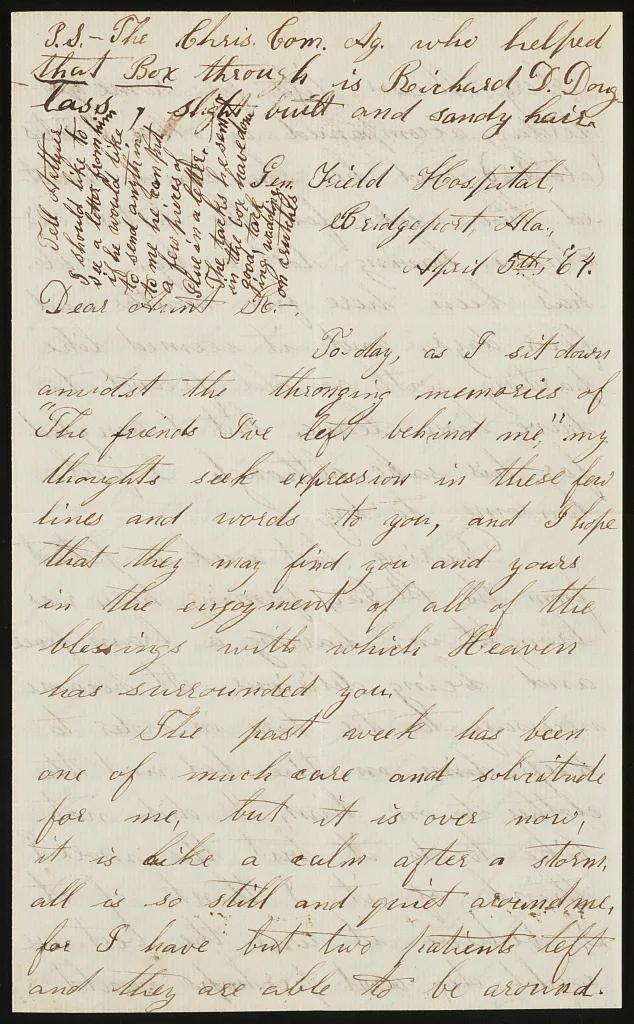 P.S.- The Chris. Com. Ag. who helped
that Box through is Reichard D. Doug-
lass, slight built and sandy hair.
Tell Arthur
I should like to
see a letter from him
if he would like
to send anything
to me he can put
a few pieces of
Glue in a letter.
The tacks he sent
in the box have done
good tack-
ing wadding
on crutches
Gen. Field Hospital,
Bridgeport, Ala.,
April 5th, '64.
Dear Aunt H.-.
To-day, as I sit down
amidst the thronging memories of
"The friends I've left behind me," my
thoughts seek expression in these few
lines and words to you, and I hope
that they may find you and yours
in the enjoyment of all of the
blessings with which Heaven
has surrounded you.
The past week has been
one of much care and solicitude
for me, but it is over now,
it is like a calm after a storm,
all is so still and quiet around me,
for I have but two patients left
and they are able to be around.